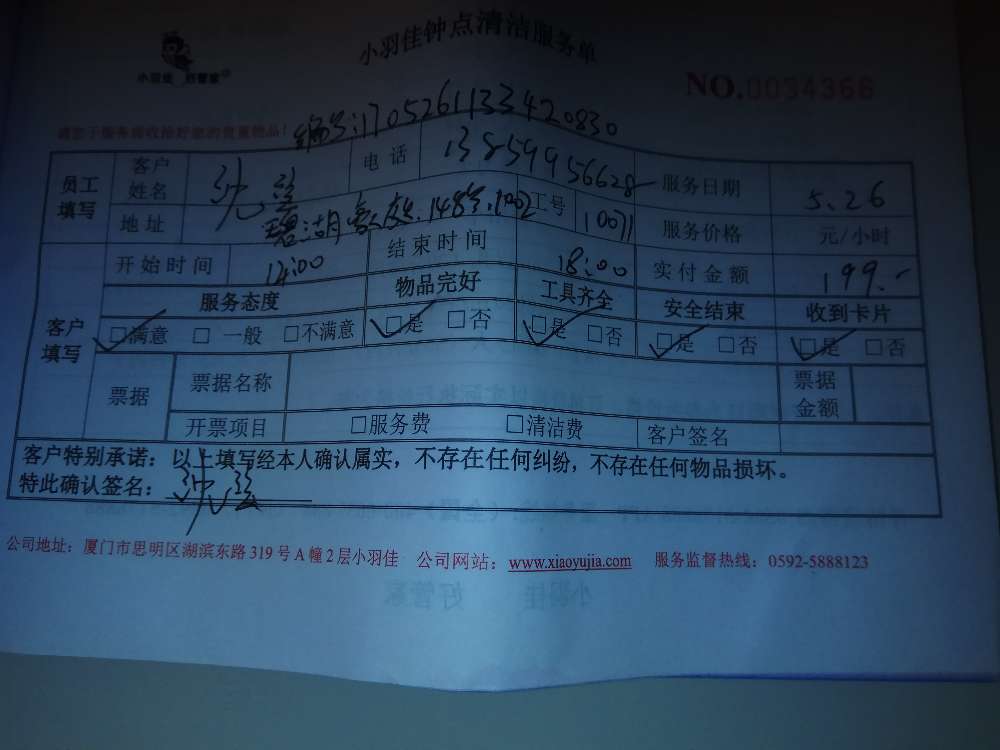 小羽佳 好管家®
小羽佳钟点清洁服务单
NO.0034366
请您于服务前收拾好您的贵重物品！
编号:1705261133420830
员工填写 客户姓名 电话 13859956628 服务日期 5.26
地址 碧湖豪庭.148号.1002 工号 10071 服务价格 元/小时
开始时间 14:00 结束时间 18:00 实付金额 199.-
客户填写 服务态度 物品完好 工具齐全 安全结束 收到卡片
□满意 □一般 □不满意 □是 □否 □是 □否 □是 □否 □是 □否
票据 票据名称 票据金额
开票项目 □服务费 □清洁费 客户签名
客户特别承诺：以上填写经本人确认属实，不存在任何纠纷，不存在任何物品损坏。
特此确认签名：
公司地址：厦门市思明区湖滨东路319号A幢2层小羽佳 公司网站：www.xiaoyujia.com 服务监督热线：0592-5888123